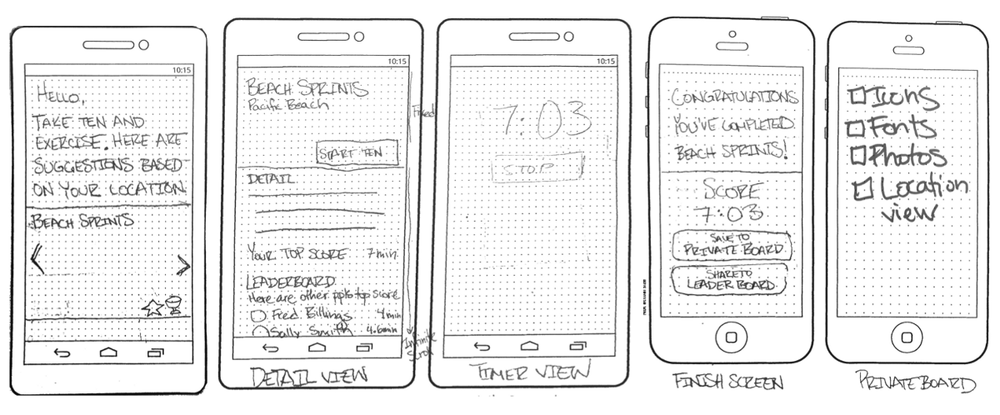 10:15
HELLO,
TAKE TEN AND
EXERCISE. HERE ARE
SUGGESTIONS BASED
ON YOUR LOCATION.
BEACH SPRINTS
10:15
BEACH SPRINTS
Pacific Beach
START TEN
Fixed
DETAIL
YOUR TOP SCORE 7min
LEADERBOARD
Here are other ppls top score
Fred Billings 4min
Sally Smith 4.6min
Infinite
Scroll
DETAIL VIEW
10:15
7:03
STOP
TIMER VIEW
CONGRATULATIONS
YOU'VE COMPLETED
BEACH SPRINTS!
SCORE
7:03
SAVE TO
PRIVATE BOARD
SHARE TO
LEADER BOARD
FINISH SCREEN
Icons
Fonts
Photos
Location
view
PRIVATE BOARD